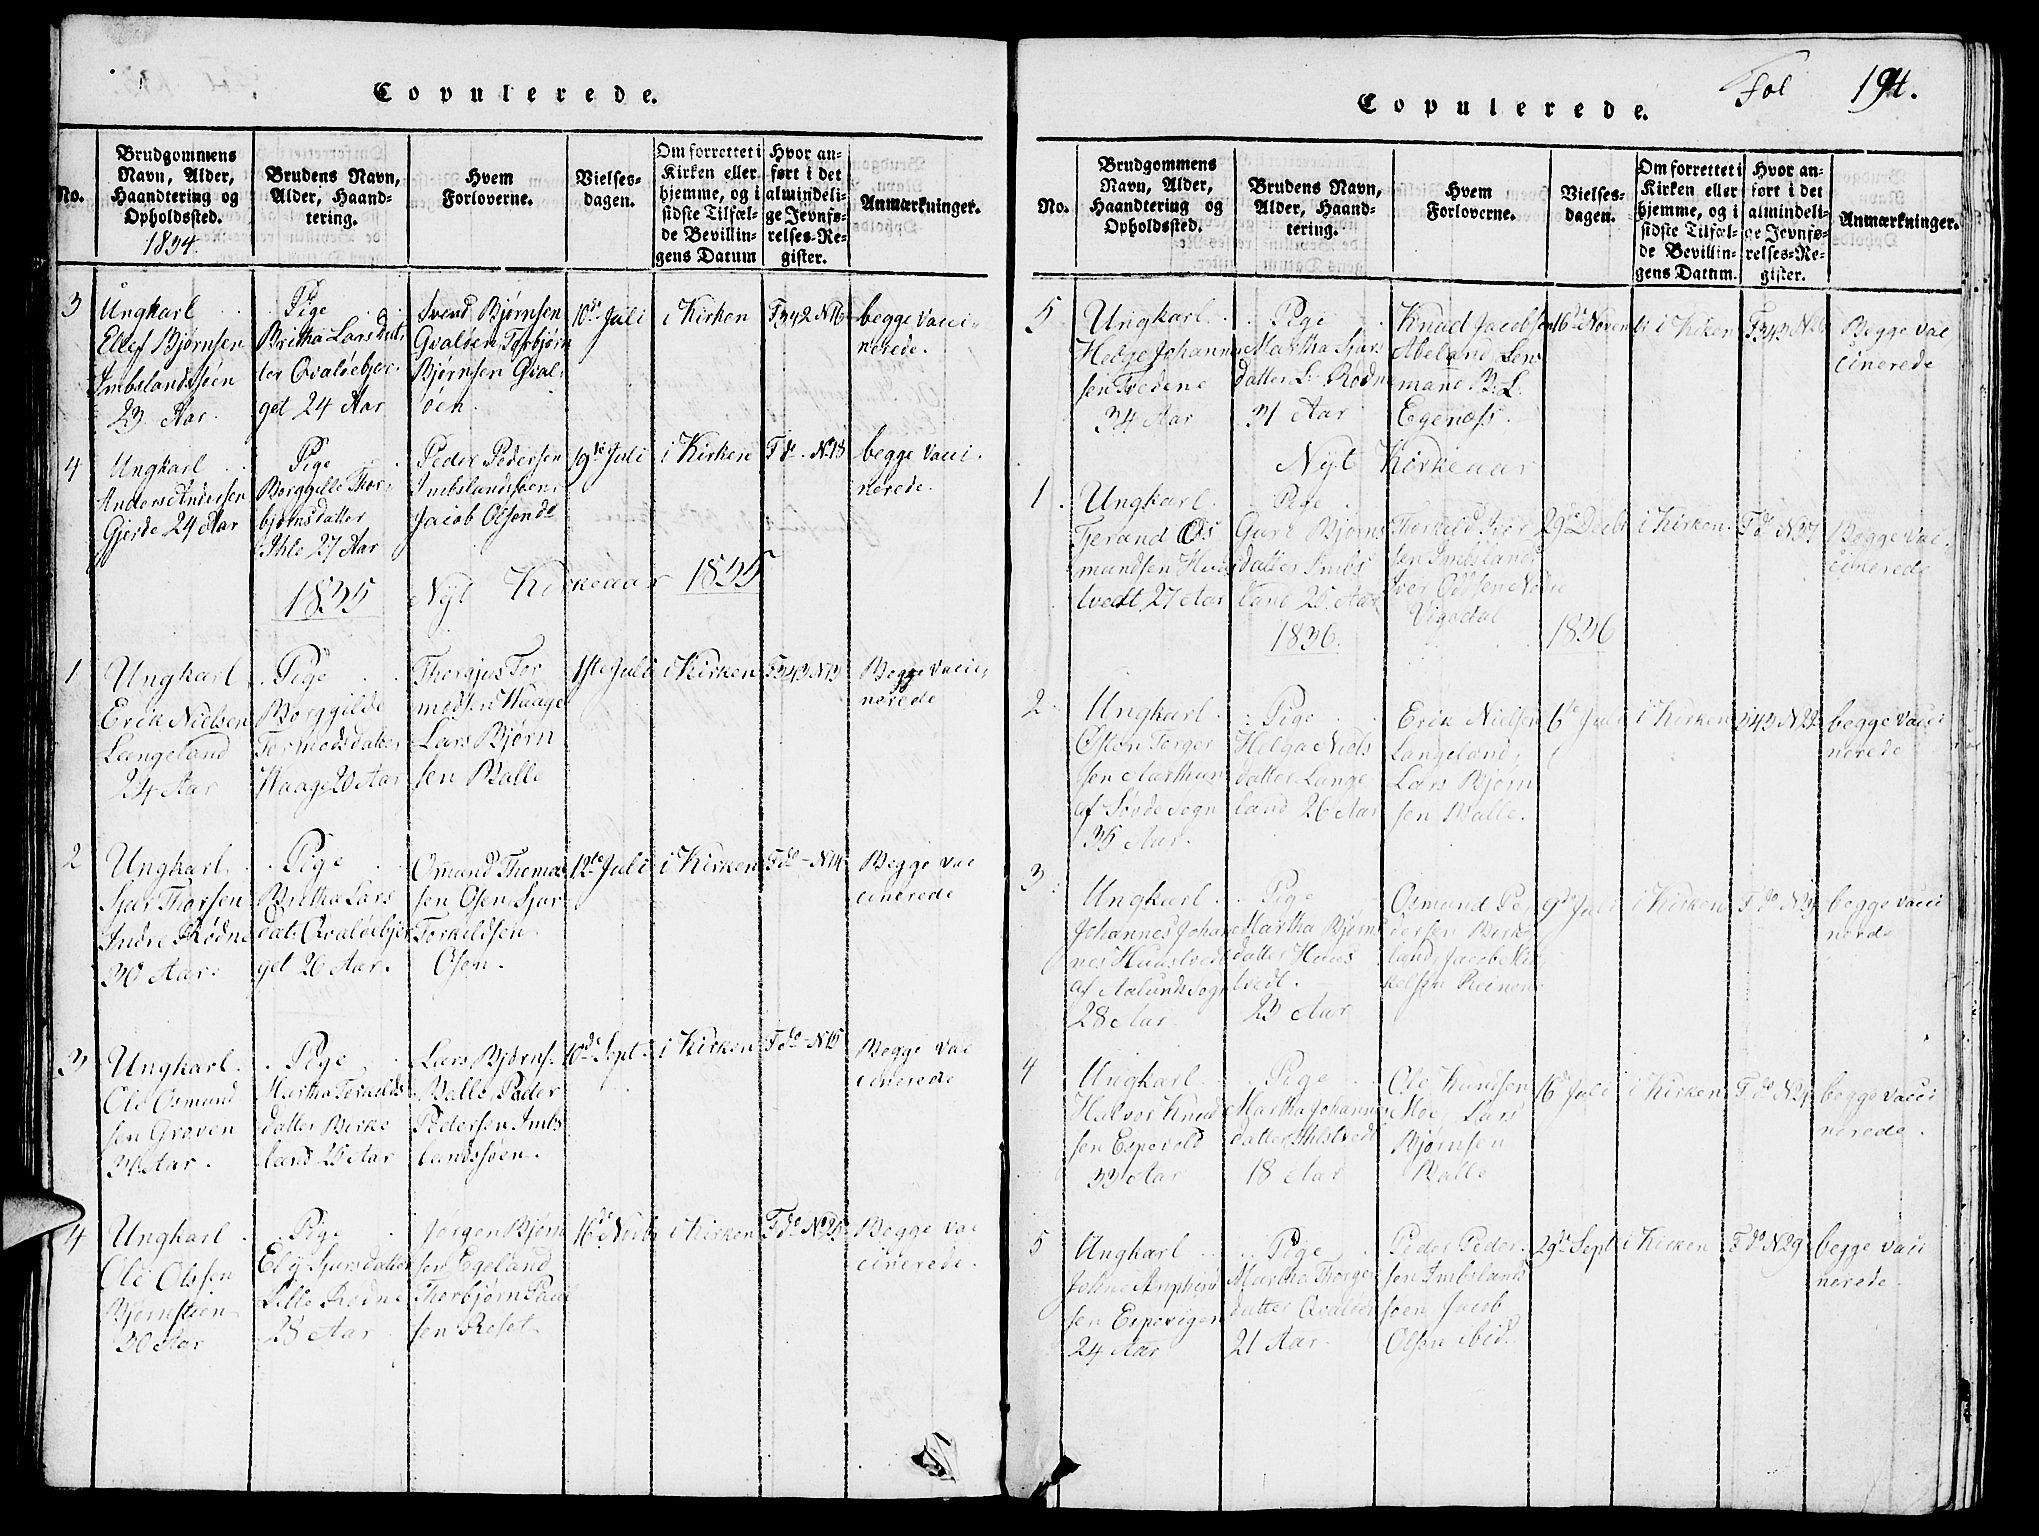 Copulerede.
No.
Brudgommens
Navn, Alder,
Haandtering og
Opholdssted.
1834.
Brudens Navn,
Alder, Haand-
tering.
Hvem
Forloverne.
Vielses-
dagen.
Om forrettet i
Kirken eller
hjemme, og i
sidste Tilfæl-
de Bevillin-
gens Datum
Hvor an-
ført i det
almindeli-
ge Jevnfø-
relses-Re-
gister.
Anmærkninger.
3
Ungkarl
Ellef Bjørnsen
Imbslandssøen
23 Aar.
Pige
Britha Larsdat-
ter Qvaløebjer-
get 24 Aar
Svend Bjørnsen
Qvaløen, Torbjørn
Bjørnsen Qval-
øen.
10de Juli
i Kirken
F342 N16
begge vacci-
nerede.
4
Ungkarl
Anders Andersen
Gjerde 24 Aar
Pige
Borggille Thor-
bjørnsdatter
Ihle 27 Aar
Peder Pedersen
Imbslandssøen,
Jacob Olsen do
19de Juli
i Kirken
F do N18
begge vacci-
nerede.
1835 Nyt Kirkeaar 1835
1
Ungkarl
Erik Nielsen
Langeland
24 Aar
Pige
Borggilde
Tormodsdatter
Waage 20 Aar
Thorgjus Tor
modsen Waage
Lars Bjørn
sen Balle
1ste Juli
i Kirken
F343 N13
Begge vacci-
nerede
2
Ungkarl.
Sjur Thorsen
Indre Rødne
30 Aar.
Pige
Britha Lars
dat. Qvaløebjer
get 26 Aar.
Omund Thomas
sen Osen, Sjur
Torkildsen
Osen.
12te Juli
i Kirken
F do N14
Begge vac
cinerede
3
Ungkarl.
Ole Osmund
sen Groven
31 Aar.
Pige
Martha Tormods
datter Birke
land 25 Aar
Lars Bjørns.
Balle, Peder
Pedersen Imbs
landssøen.
10de Sept.
i Kirken
F do N15
Begge vac
cinerede
4
Ungkarl.
Ole Olsen
Bjørnstien
30 Aar
Pige
Eli Sjursdatter
Lille Rødne
28 Aar
Jørgen Bjørn
sen Egeland
Thorbjørn Paul
sen Røset
16de Novbr
i Kirken
F do No25
Begge vac
cinerede.
Fol 194.
Copulerede.
No.
Brudgommens
Navn, Alder,
Haandtering og
Opholdssted.
Brudens Navn,
Alder, Haand-
tering.
Hvem
Forloverne.
Vielses-
dagen.
Om forrettet i
Kirken eller
hjemme, og i
sidste Tilfæl-
de Bevillin-
gens Datum.
Hvor an-
ført i det
almindeli-
ge Jevnfø-
relses-Re-
gister.
Anmærkninger.
5
Ungkarl
Helge Johanne
sen Tvedene
34 Aar
Pige
Martha Sjurs
datter L. Rødne
31 Aar
Knud Jacobsen
Abeland, Lens
mand B. L.
Egenæss.
16de Novem
i Kirken
F343 N26
Begge vac
cinerede
Nyt Kirkeaar
1.
Ungkarl.
Tjerand Os
mundsen Huus
tvedt 27 Aar
Pige
Guri Bjørns
datter Imbs
land 25 Aar
Thorkild Iver
sen Imbsland
Iver Oddsen Nedre
Vigedal
29de Decbr
i Kirken
F do N37
Begge vac-
cinerede
1836. 1836
2
Ungkarl.
Østen Torger
sen Aarthun
af Søvde Sogn
35 Aar.
Pige
Helga Niels
datter Lange
land 26 Aar
Erik Nielsen
Langeland,
Lars Bjørn
sen Balle.
6te Juli
i Kirken
begge vacci
nerede
3
Ungkarl.
Johannes Johan
nes Huustvedt
28 Aar
Pige
Martha Bjørns
datter Huus
tvedt.
23 Aar
Osmund Pe
dersen Birke
land, Jacob Mi
kelsen Reinen
9de Juli
i Kirken
begge vacci
nerede
4
Ungkarl.
Halvor Knud
sen Espevold
33 Aar
Pige
Martha Johannes
datter
18 Aar
Ole Knudsen
Moe, Lars
Bjørnsen
Balle
16de Juli
i Kirken
begge vacci
nerede.
5
Ungkarl
sen Espevigen
24 Aar
Pige
Martha Thorger
datter Qvaløen
21 Aar.
Peder Peder
sen Imbslands
søen, Jacob
Olsen ibid.
29de Sept
i Kirken
F do N29
begge vacci
nerede.